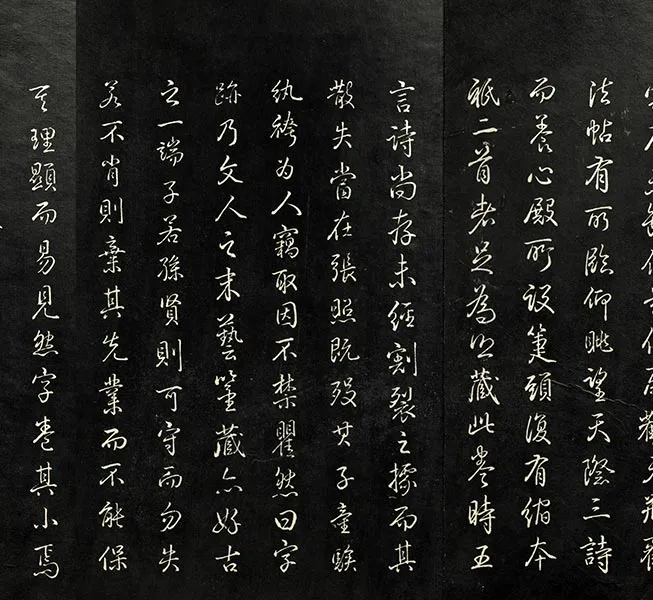 法帖有所臨仰眺望天際三詩
而養心殿所設箑頭復有縮本
祇二首者足為藏此卷時五
言詩尚存未經割裂之據而其
散失當在張照既歿其子童騃
紈袴為人竊取因不禁瞿然曰字
跡乃文人之末藝鑒藏亦好古
之一端子若孫賢則可守而勿失
若不肖則棄其先業而不能保
其理顯而易見然字卷其小焉